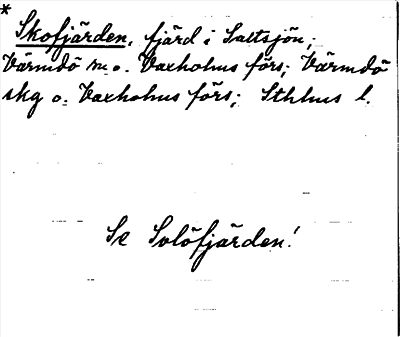 *
Skofjärden, fjärd i Saltsjön;
Värmdö m. o. Vaxholms förs; Värmdö
skg o. Vaxholms förs; Sthlms l.
Se Solöfjärden!